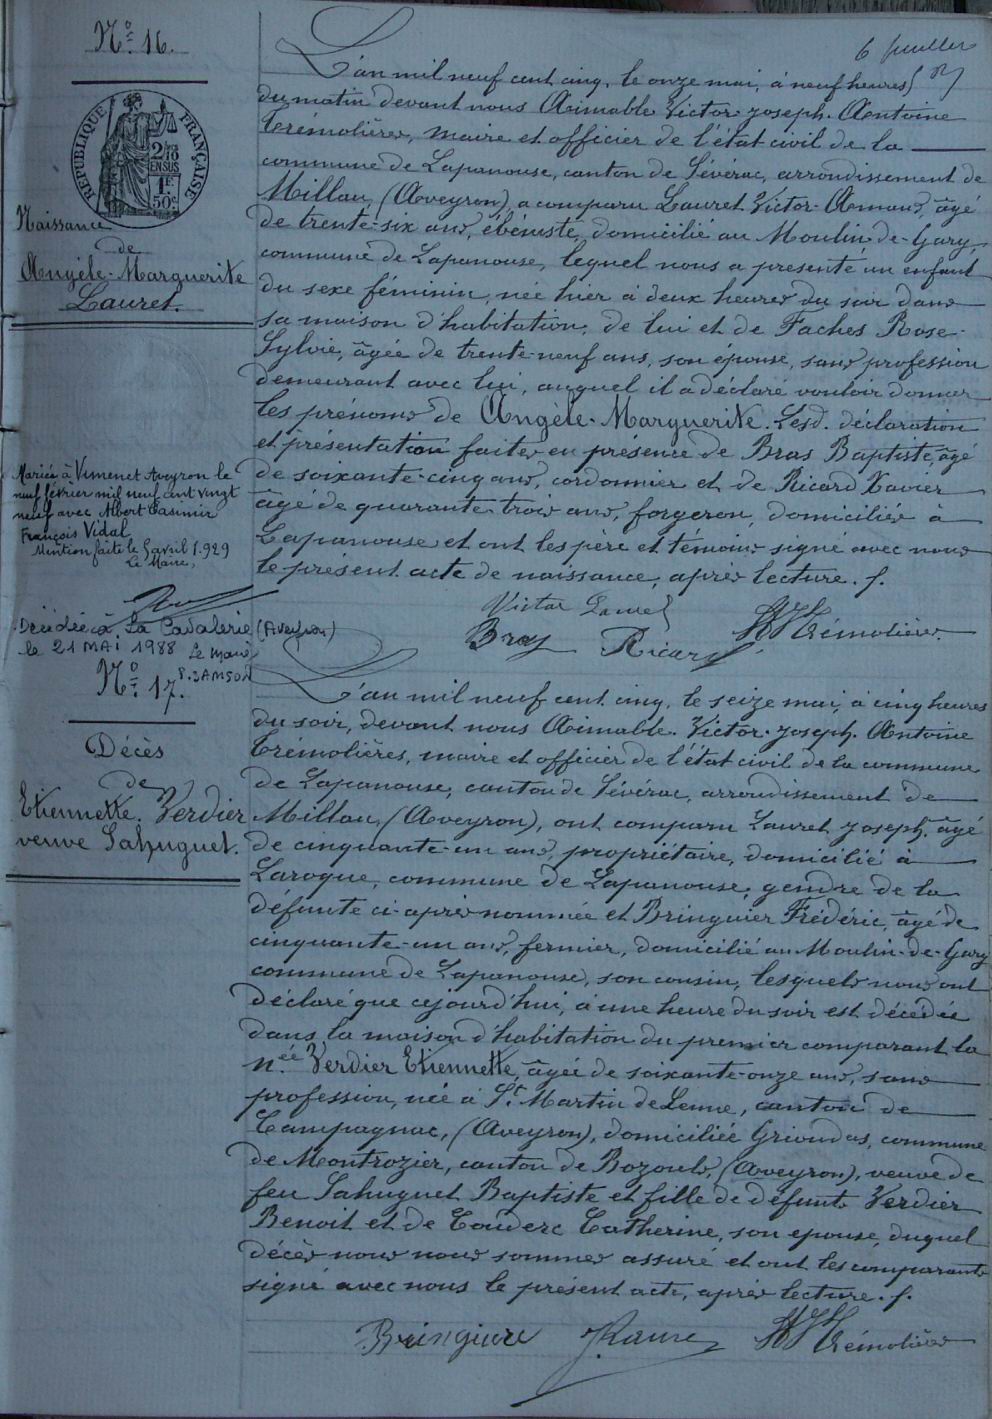 6 feuillet
N° 16.
RÉPUBLIQUE FRANÇAISE
2/10 EN SUS
1 F. 50 c.
Naissance
de
Angèle-Marguerite
Lauret.
L'an mil neuf cent cinq, le onze mai, à neuf heures
du matin devant nous Aimable Victor-Joseph-Antoine
Trémolières, maire et officier de l'état civil de la
commune de Lapanouse, canton de Sévérac, arrondissement de
Millau, (Aveyron), a comparu Lauret Victor-Amans, âgé
de trente-six ans, ébéniste, domicilié au Moulin-de-Gary,
commune de Lapanouse, lequel nous a présenté un enfant
du sexe féminin, née hier à deux heures du soir dans
sa maison d'habitation, de lui et de Faches Rose-
Sylvie, âgée de trente-neuf ans, son épouse, sans profession
demeurant avec lui, auquel il a déclaré vouloir donner
les prénoms de Angèle-Marguerite. Lesd. déclaration
et présentation faites en présence de Bras Baptiste, âgé
de soixante-cinq ans, cordonnier et de Ricard Xavier
âgé de quarante-trois ans, forgeron, domiciliés à
Lapanouse et ont les père et témoins signé avec nous
le présent acte de naissance, après lecture. f.
Victor Lauret
Bras Ricard Trémolières
Mariée à Vimenet Aveyron le
neuf février mil neuf cent vingt
neuf avec Albert Casimir
François Vidal
Mention faite le 5 avril 1.929
Le Maire,
Décédée à La Cavalerie (Aveyron)
le 21 MAI 1988 Le Maire
P. SAMSON
N° 17.
Décès
de
Etiennette Verdier
veuve Sahuguet.
L'an mil neuf cent cinq, le seize mai, à cinq heures
du soir, devant nous Aimable-Victor-Joseph-Antoine
Trémolières, maire et officier de l'état civil de la commune
de Lapanouse, canton de Sévérac, arrondissement de
Millau, (Aveyron), ont comparu Lauret Joseph, âgé
de cinquante-un ans, propriétaire, domicilié à
Laroque, commune de Lapanouse, gendre de la
défunte ci-après nommée et Bringuier Frédéric, âgé de
cinquante-un ans, fermier, domicilié au Moulin-de-Gary
commune de Lapanouse, son cousin, lesquels nous ont
déclaré que cejourd'hui, à une heure du soir est décédée
dans la maison d'habitation du premier comparant la
n.ée Verdier Etiennette, âgée de soixante-onze ans, sans
profession, née à St Martin de Lenne, canton de
Campagnac, (Aveyron), domiciliée Grioudas, commune
de Montrozier, canton de Bozouls, (Aveyron), veuve de
feu Sahuguet Baptiste et fille de défunts Verdier
Benoit et de Couderc Catherine, son epouse, duquel
décès nous nous sommes assuré et ont les comparants
signé avec nous le présent acte, après lecture. f.
Bringuier J. Lauret Trémolières